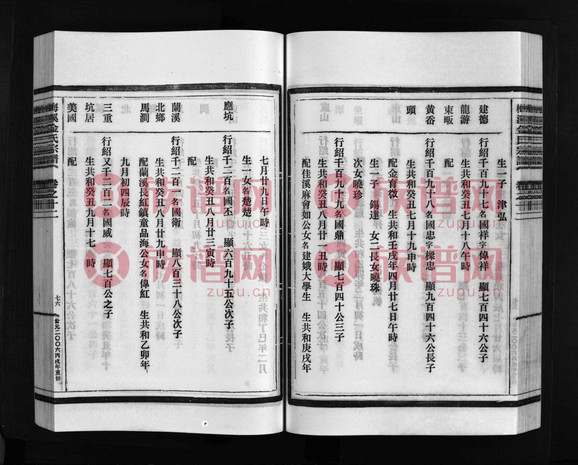 建德
龍游
東畈
黃岙
生一子 津弘
行紹千一百九十七名國祥字偉祥 顯七百四十六公子
生共和癸丑七月十八午時
配
行紹千一百九十八名國忠字樑忠 顯九百四十六公長子
生共和癸丑七月十九申時
配金育微 生共和壬戌年四月廿七日午時
生一子 錫達 女二長女曉珠
次女曉珍
頭
行紹千一百九十九名國鼎 顯七百四十公三子
生共和癸丑八月廿一丑時
配佳溪麻會如公女名建娥大學生 生共和庚戌年
七月廿九日午時
生一女名楚楚
應坑
行紹千二百名國丕 顯六百九十五公次子
生共和癸丑八月廿三寅時
配
蘭溪
北鄉
馬澗
行紹千二百一名國衛 顯八百三十八公次子
生共和癸丑八月廿九申時
配蘭溪長紅鎮童品海公女名偉紅 生共和乙卯年
九月初四辰時
三重
坑居
行紹又千二百一名國威 顯七百公之子
生共和癸丑九月十七 時
美國
配
七六
族谱网
zupu.cn
族谱网
zupu.cn
族谱网
zupu.cn